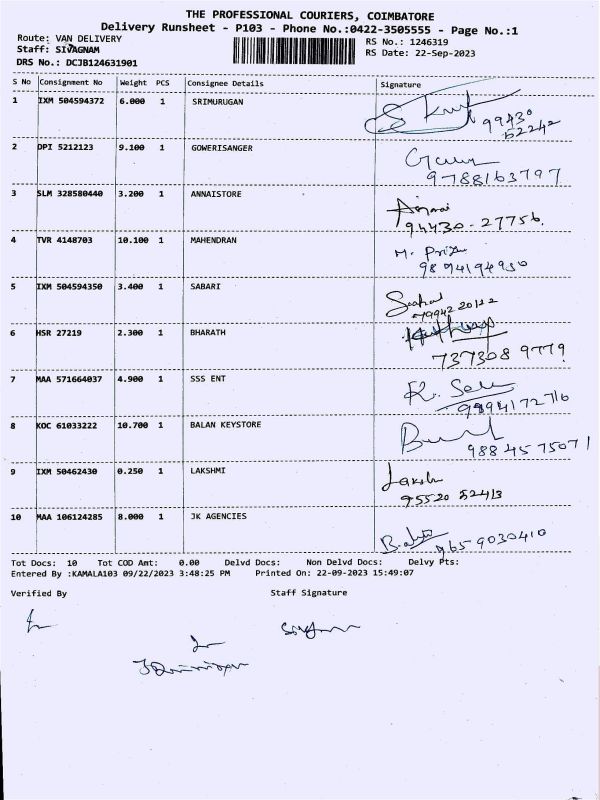 THE PROFESSIONAL COURIERS, COIMBATORE
Delivery Runsheet - P103 - Phone No.:0422-3505555 - Page No.:1
Route: VAN DELIVERY
RS No.: 1246319
Staff: SIVAGNAM
RS Date: 22-Sep-2023
DRS No.: DCJB124631901
S No Consignment No Weight PCS Consignee Details Signature
1 IXM 504594372 6.000 1 SRIMURUGAN
99430
52242
2 DPI 5212123 9.100 1 GOWERISANGER
9788163797
3 SLM 328580440 3.200 1 ANNAISTORE
94430-27756.
4 TVR 4148703 10.100 1 MAHENDRAN
9894194950
5 IXM 504594350 3.400 1 SABARI
6 HSR 27219 2.300 1 BHARATH
737308 9779
7 MAA 571664037 4.900 1 SSS ENT
9994172716
8 KOC 61033222 10.700 1 BALAN KEYSTORE
98845 75071
9 IXM 50462430 0.250 1 LAKSHMI
95520 52413
10 MAA 106124285 8.000 1 JK AGENCIES
9659030410
Tot Docs: 10 Tot COD Amt: 0.00 Delvd Docs: Non Delvd Docs: Delvy Pts:
Entered By :KAMALA103 09/22/2023 3:48:25 PM Printed On: 22-09-2023 15:49:07
Verified By Staff Signature